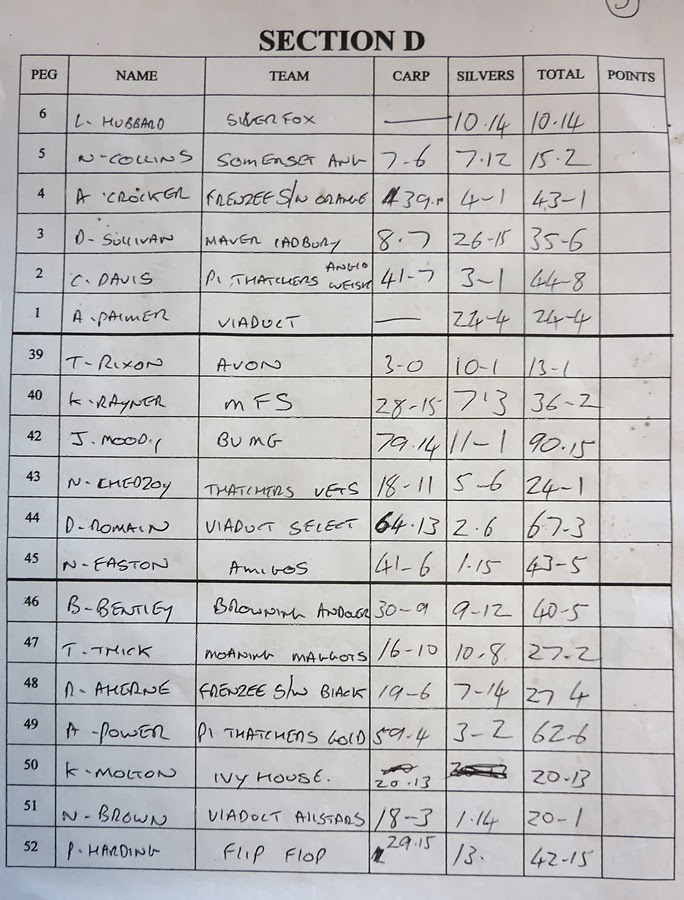 SECTION D
PEG NAME TEAM CARP SILVERS TOTAL POINTS
6 L- HUBBARD SILVER FOX — 10.14 10.14
5 N-COLLINS SOMERSET ANG 7-6 7.12 15.2
4 A CROCKER FRENZEE S/W ORANGE 39. 4-1 43-1
3 D-SULLIVAN MAVER CADBURY 8.7 26-15 35-6
2 C.DAVIS PI THATCHERS ANGLO 41-7 3-1 44-8
1 A.PALMER VIADUCT — 24-4 24-4
39 T-RIXON AVON 3-0 10-1 13-1
40 K-RAYNER MFS 28-15 7'3 36-2
42 J.MOODY BUMG 79.14 11-1 90.15
43 N-CHEDZOY THATCHERS VETS 18-11 5-6 24-1
44 D-ROMAIN VIADUCT SELECT 64.13 2.6 67-3
45 N-EASTON AMIGOS 41-6 1.15 43-5
46 B-BENTLEY BROWNING ANDOVER 30-9 9-12 40-5
47 T-THICK MOANING MAGGOTS 16-10 10.8. 27-2
48 R-AHERNE FRENZEE S/W BLACK 19-6 7-14 27 4
49 A-POWER PI THATCHERS GOLD 59-4 3-2 62-6
50 K-MOLTON IVY HOUSE. 20.13 20-13
51 N-BROWN VIADUCT ALLSTARS 18-3 1.14 20-1
52 P.HARDING FLIP FLOP 29.15 13. 42-15